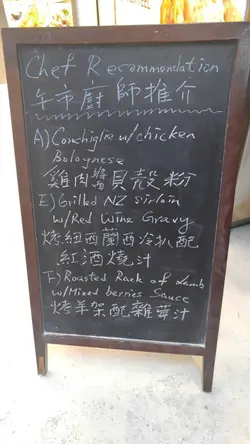 Chef Recommendation
午市廚師推介
A) Conchiglie w/chicken
Bolognese
雞肉醬貝殼粉
E) Grilled NZ Sirloin
w/Red Wine Gravy
烤紐西蘭西冷扒配
紅酒燒汁
F) Roasted Rack of Lamb
w/Mixed berries Sauce
烤羊架配雜莓汁